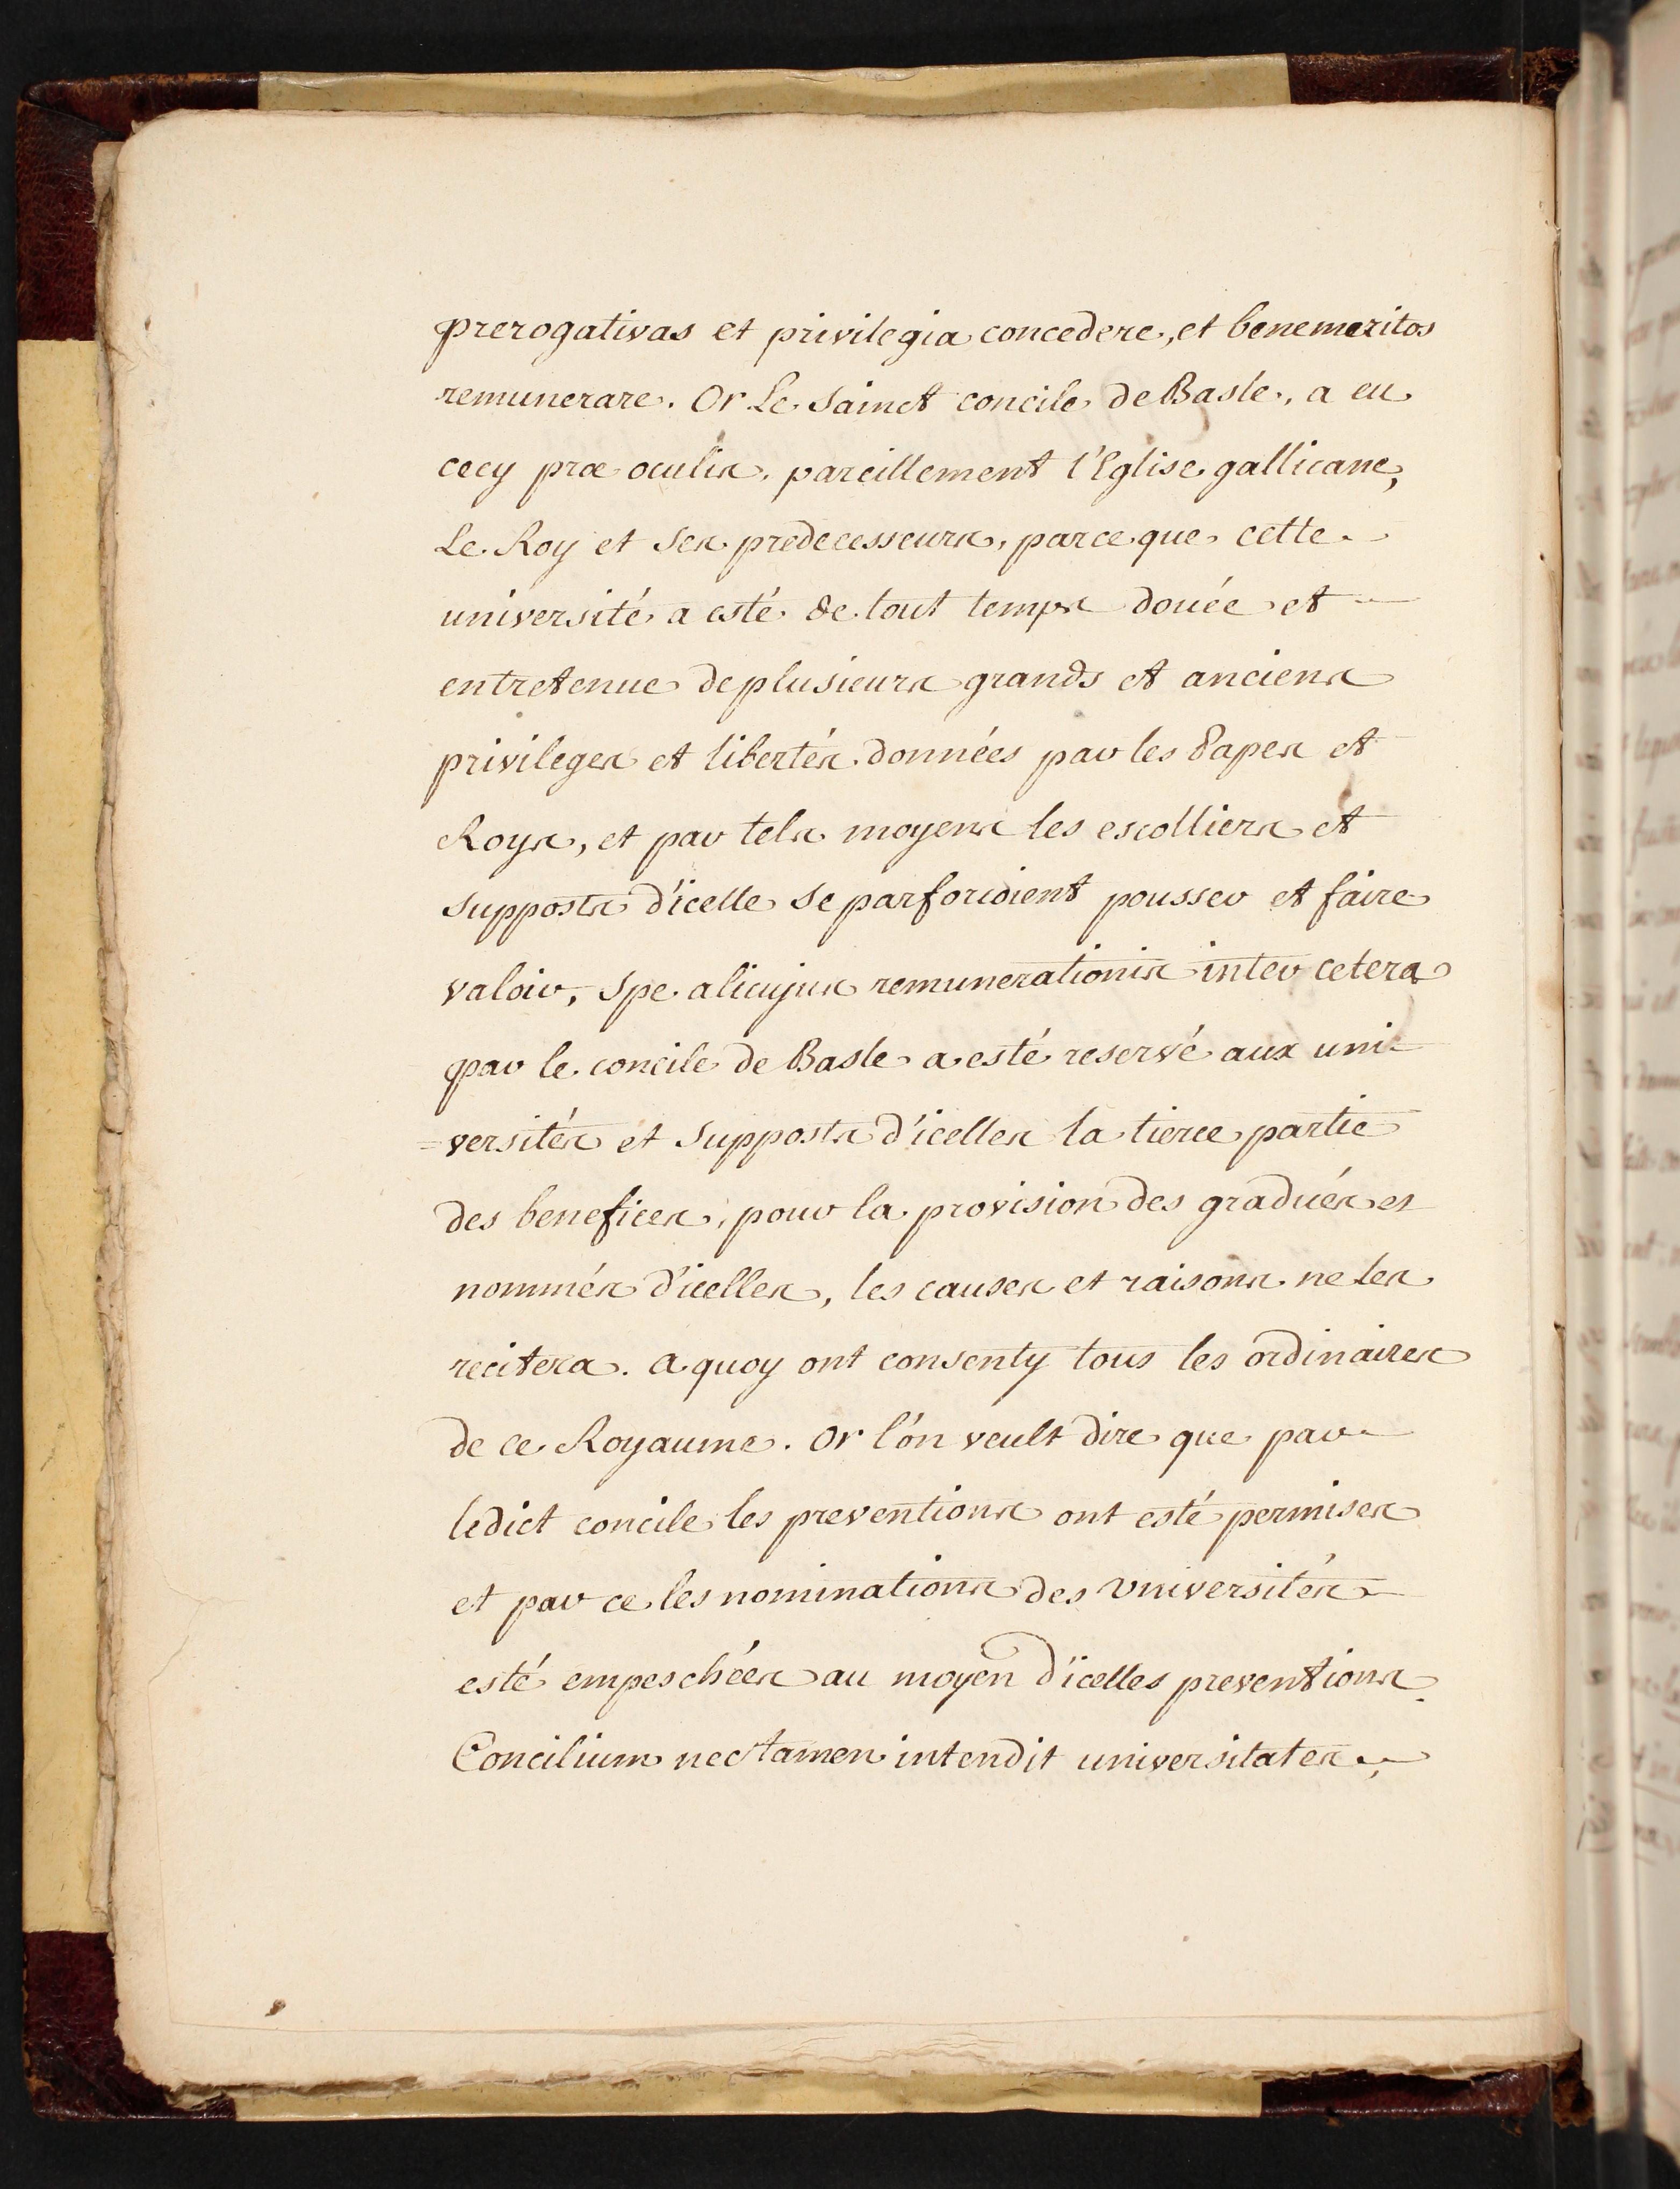 prerogativas et privilegia concedere, et benemeritos
remunerare. Or Le Sainct concile de Basle, a eu
cecy præ oculis. pareillement l'Eglise gallicane,
Le Roy et ses predecesseurs, parce que cette
université a esté de tout temps douée et
entretenue de plusieurs grands et anciens
privileges et libertés données par les Papes et
Roys, et par tels moyens les escolliers et
supposts d'icelle se parforcoient pousser et faire
valoir, spe alicujus remunerationis inter cetera
par le concile de Basle a esté reservé aux uni-
=versités et supposts d'icelles la tierce partie
des benefices, pour la provision des gradués et
nommés d'icelles, les causes et raisons ne les
recitera. a quoy ont consenty tous les ordinaires
de ce Royaume. Or l'on veult dire que par
ledict concile les preventions ont esté permises
et par ce les nominations des Universités
esté empeschées au moyen d'icelles preventions
Concilium nec tamen intendit universitates,